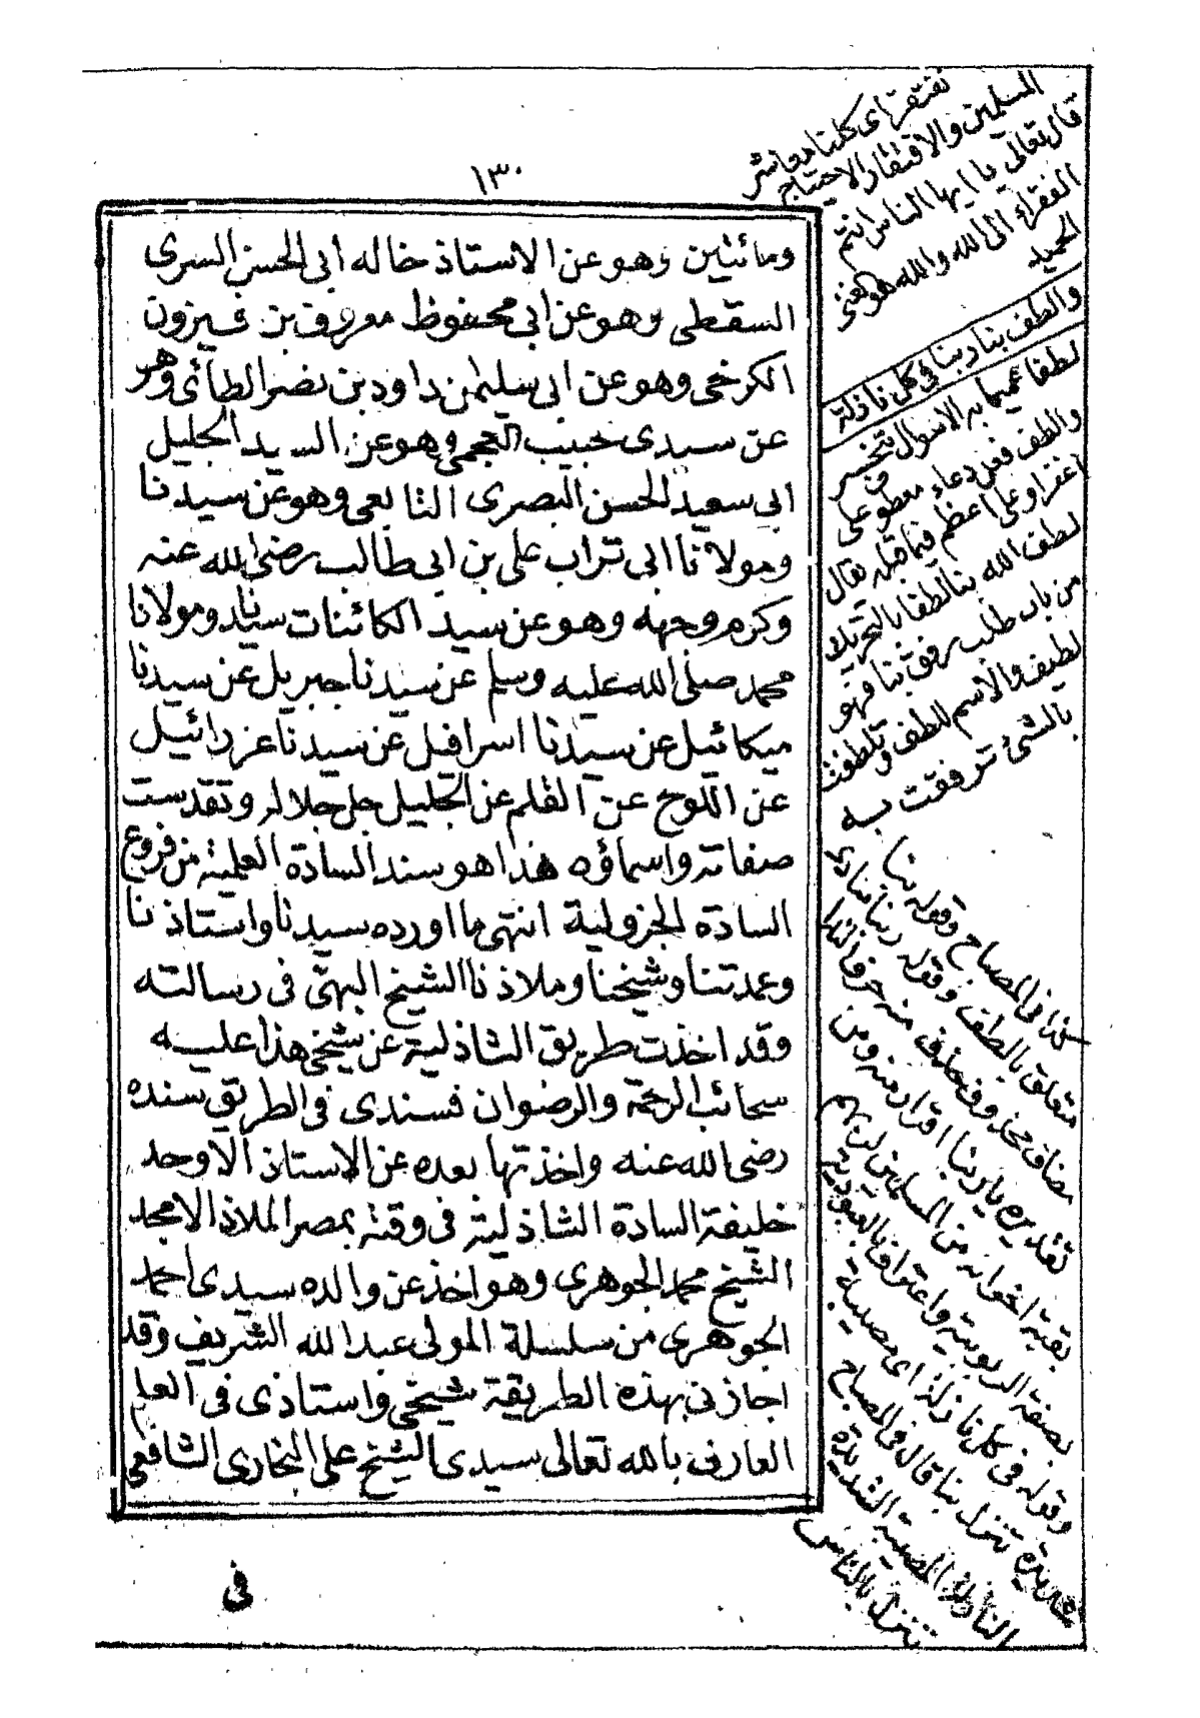 ١٣٠
ومائتين وهو عن الاستاذ خاله أبى الحسن السرى
السقطى وهو عن ابى محفوظ معروف بن فيزون
الكرخى وهو عن ابى سليمن داود بن نصر الطائى وهو
عن سيدى حبيب العجمى وهو عن السيد الجليل
ابى سعيد الحسن البصرى التابعى وهو عن سيدنا
ومولانا ابى تراب على بن ابى طالب رضى الله عنه
وكرم وجهه وهو عن سيد الكائنات سيدنا ومولانا
محمد صلى الله عليه وسلم عن سيدنا جبريل عن سيدنا
ميكائيل عن سيدنا اسرافيل عن سيدنا عزرائيل
عن اللوح عن القلم عن الجليل جل جلاله وتقدست
صفاته واسماؤه هذا هو سند السادة العلمية من فروع
السادة الجزولية انتهى ما اورده سيدنا واستاذنا
وعمدتنا وشيخنا وملاذنا الشيخ البهى فى رسالته
وقد اخذت طريق الشاذلية عن شيخى هذا عليه
سحائب الرحمة والرضوان فسندى فى الطريق سنده
رضى الله عنه واخذتها بعده عن الاستاذ الاوحد
خليفة السادة الشاذلية فى وقته بمصر الملاذ الامجد
الشيخ محمد الجوهرى وهو اخذ عن والده سيدى احمد
الجوهرى من سلسلة المولى عبد الله الشريف وقد
اجازنى بهذه الطريقة شيخى واستاذى فى العلم
العارف بالله تعالى سيدى الشيخ على البخارى الشافعى
فى
نفتقر اى كلنا معاشر
المسلمين والافتقار الاحتياج
قال تعالى يا ايها الناس انتم
الفقراء الى الله والله هو الغنى
الحميد
والطف بنا ربنا فى كل نازلة
لطفا عميما به الاهوال تنحسر
والطف فعل دعاء معطوف على
اغفر او على اعظم فيما قبله يقال
لطف الله بنا لطفا بالتحريك
من باب طلب رفق بنا فهو
لطيف والاسم اللطف وتلطفت
بالشئ ترفقت به
كذا فى المصباح وقوله بنا
متعلق بالطف وقوله ربنا منادى
مضاف محذوف حذف منه حرف الندا
تقديره يا ربنا اقرار منه ومن
بقية اخوانه من المسلمين لربهم
بصفة الربوبية واعترافا بالعبودية
وقوله فى كل نازلة اى مصيبة
شديدة تنزل بنا قال فى المصباح
النازلة المصيبة الشديدة
تنزل بالناس